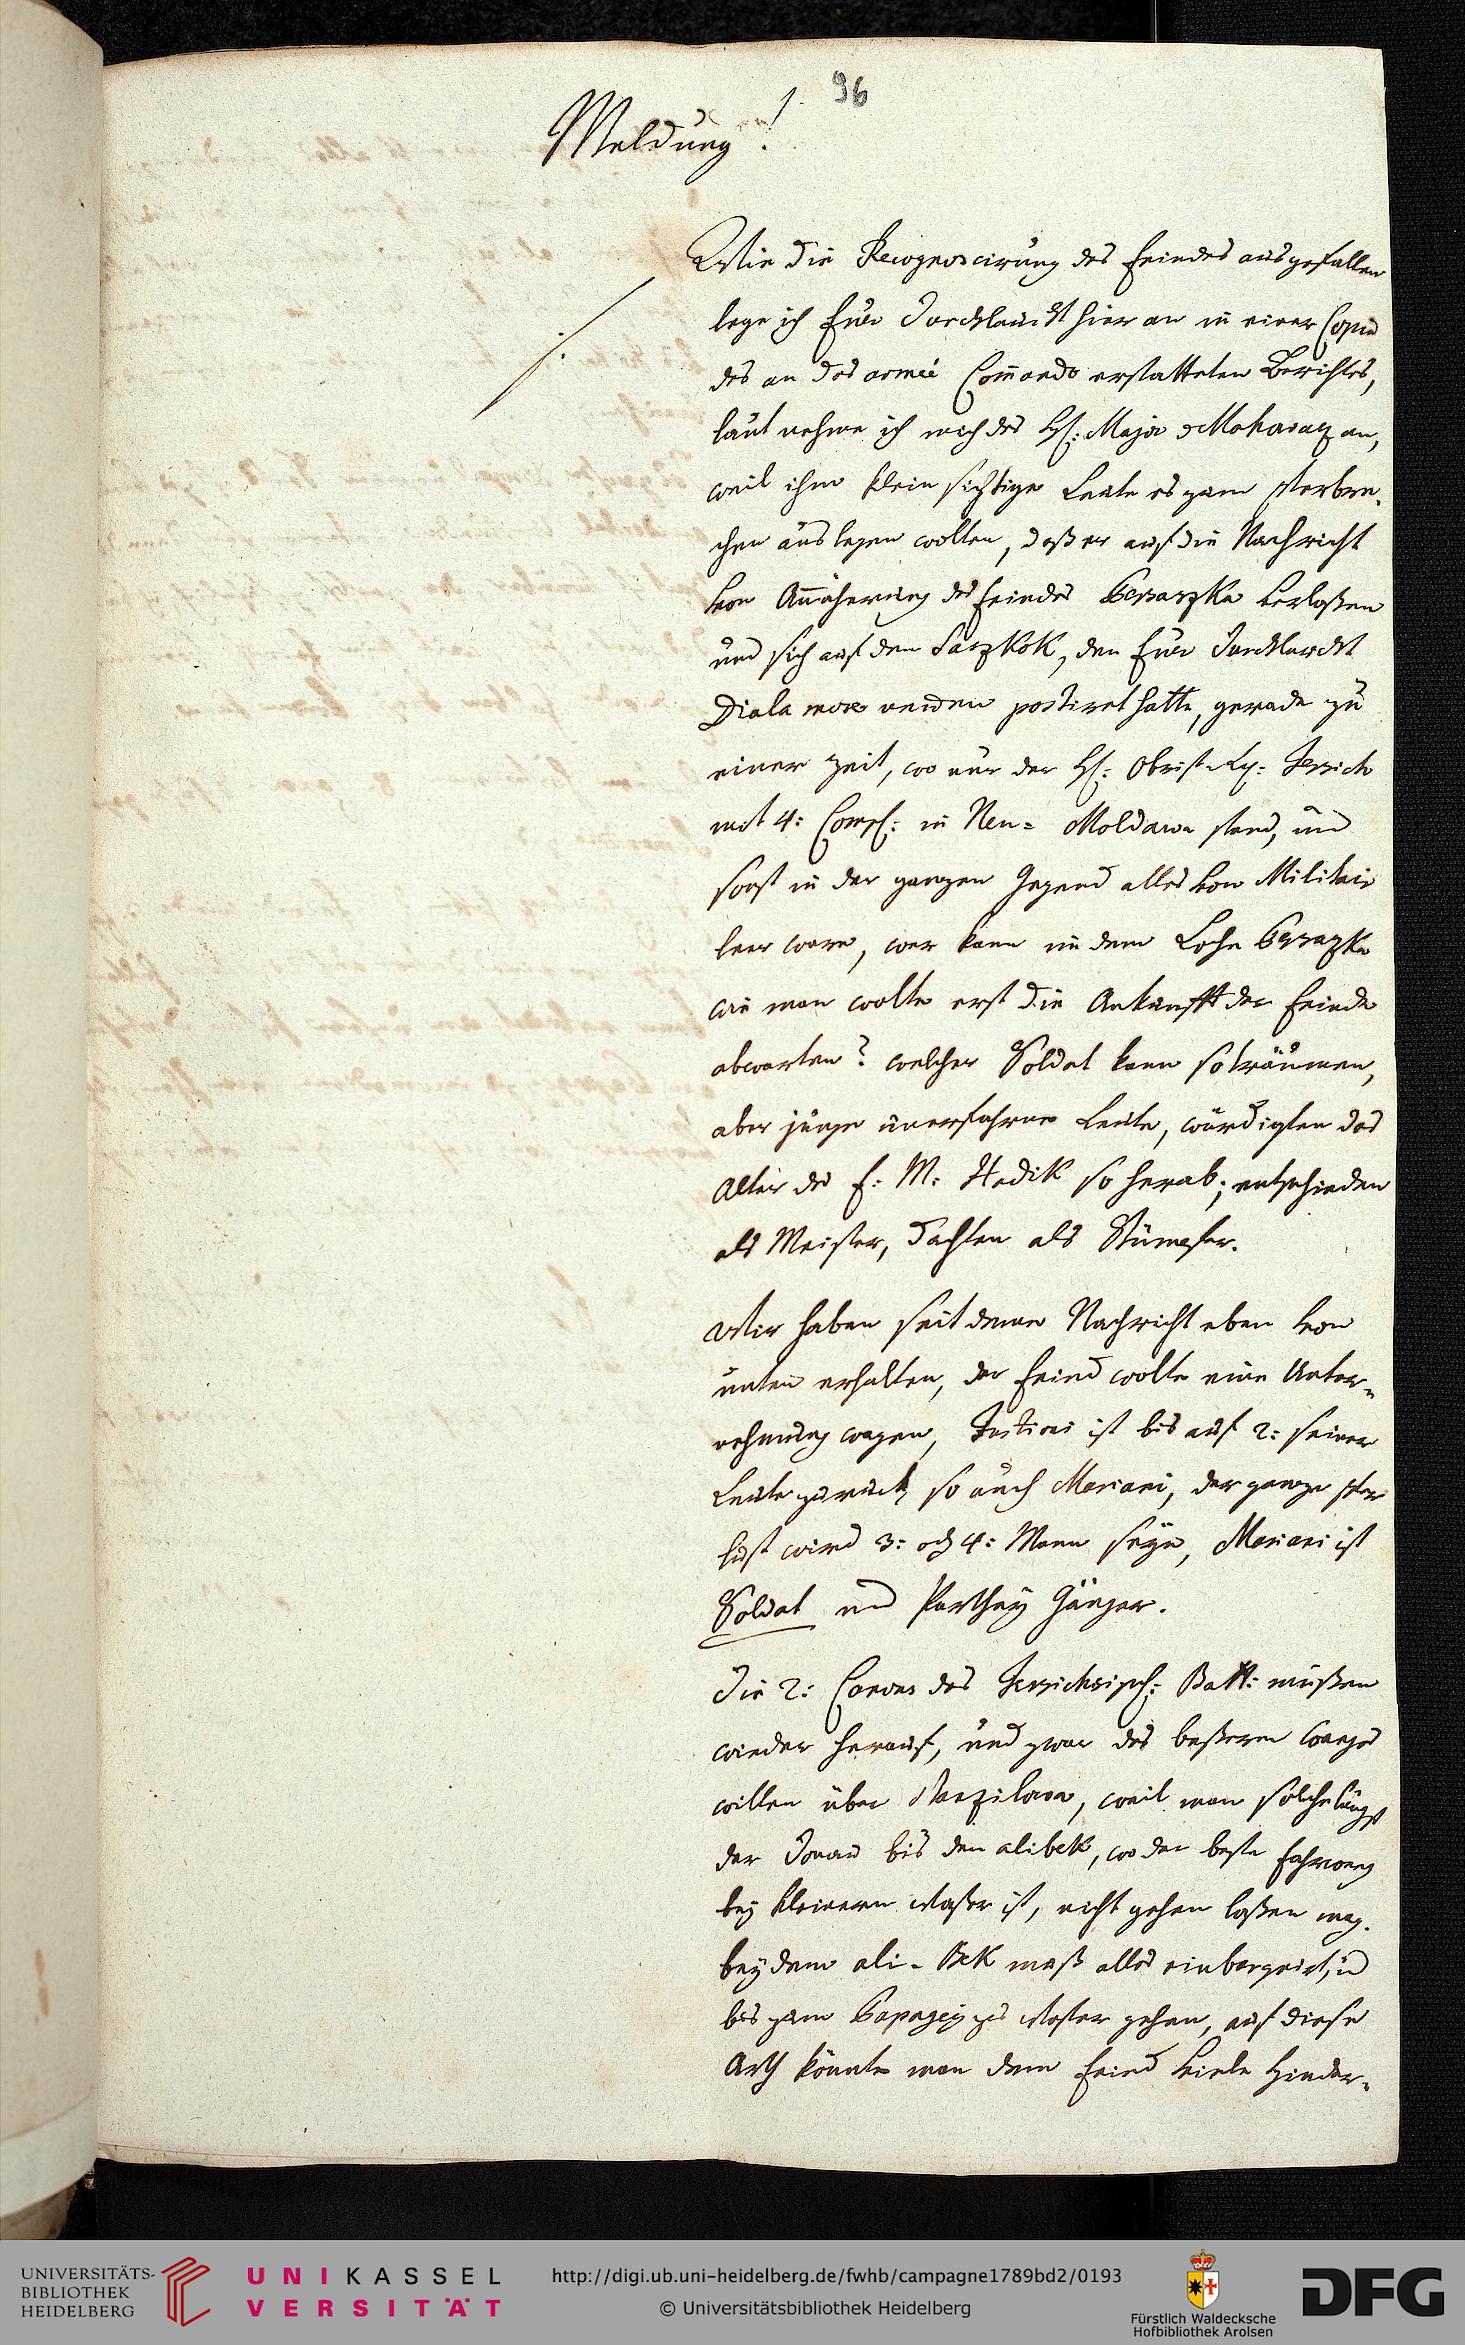 96
Meldung!
Wie die Recognoscirung des Feindes ausgefallen
lege ich Euer Durchlaucht hier an in einer Copie
des an das armée Commando erstatteten Berichtes,
laut nehme ich mich des H: Major Moharacz an,
weil ihm kleinsichtige Leute es zum Verbre-
chen auslegen wollten, daß er auf die Nachricht
von Annäherung des Feindes verlaßen
und sich auf den, den Euer Durchlaucht
postiret hatte, gerade zu
einer Zeit, wo nur der H: Obrist-Lt:
mit 4: Comp: in Neu= Moldawa stand, und
sonst in der ganzen Gegend alles von Militair
leer ware, wer kann in dem Loche
wie man wolte erst die Ankunfft der Feinde
abwarten? welcher Soldat kann so träumen,
aber junge unerfahrne Leute, würdigten das
Alter des F: M: Hadik so herab; entschieden
als Meister, dachten als Stümpfer.
Wir haben seit deme Nachricht eben von
unten erhalten, der Feind wolte eine Unter=
nehmung wagen, ist bis auf 2: seiner
Leute zurück, so auch Mariani, der ganze Ver
lust wird 3: od 4: Mann seyn, Mariani ist
Soldat und Parthey Gänger.
Die 2: Canons des Batt: müßen
wieder herauf, und zwar des beßeren Weeges
willen über, weil man solche längst
der Donau bis den alibek, wo der beste Fahrweeg
bey kleinern Waßer ist, nicht gehen laßen mag.
bey dem ali-Bek muß alles, u
bis zum Waßer gehen, auf diese
Arth könnte man dem Feind viele Hinder=
UNIVERSITÄTS-
BIBLIOTHEK
HEIDELBERG
UNIKASSEL
VERSITÄT
http://digi.ub.uni-heidelberg.de/fwhb/campagne1789bd2/0193
© Universitätsbibliothek Heidelberg
Fürstlich Waldecksche
Hofbibliothek Arolsen
DFG